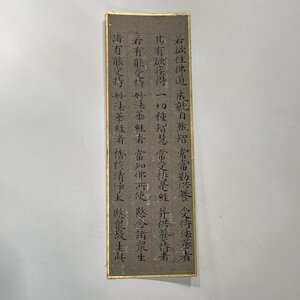 若欲住佛道 成就自然智 常當勤供養 受持法華者
其有欲疾得 一切種智慧 當受持是經 并供養持者
若有能受持 妙法華經者 當知佛所使 愍念諸衆生
諸有能受持 妙法華經者 捨於清淨土 愍衆故生此